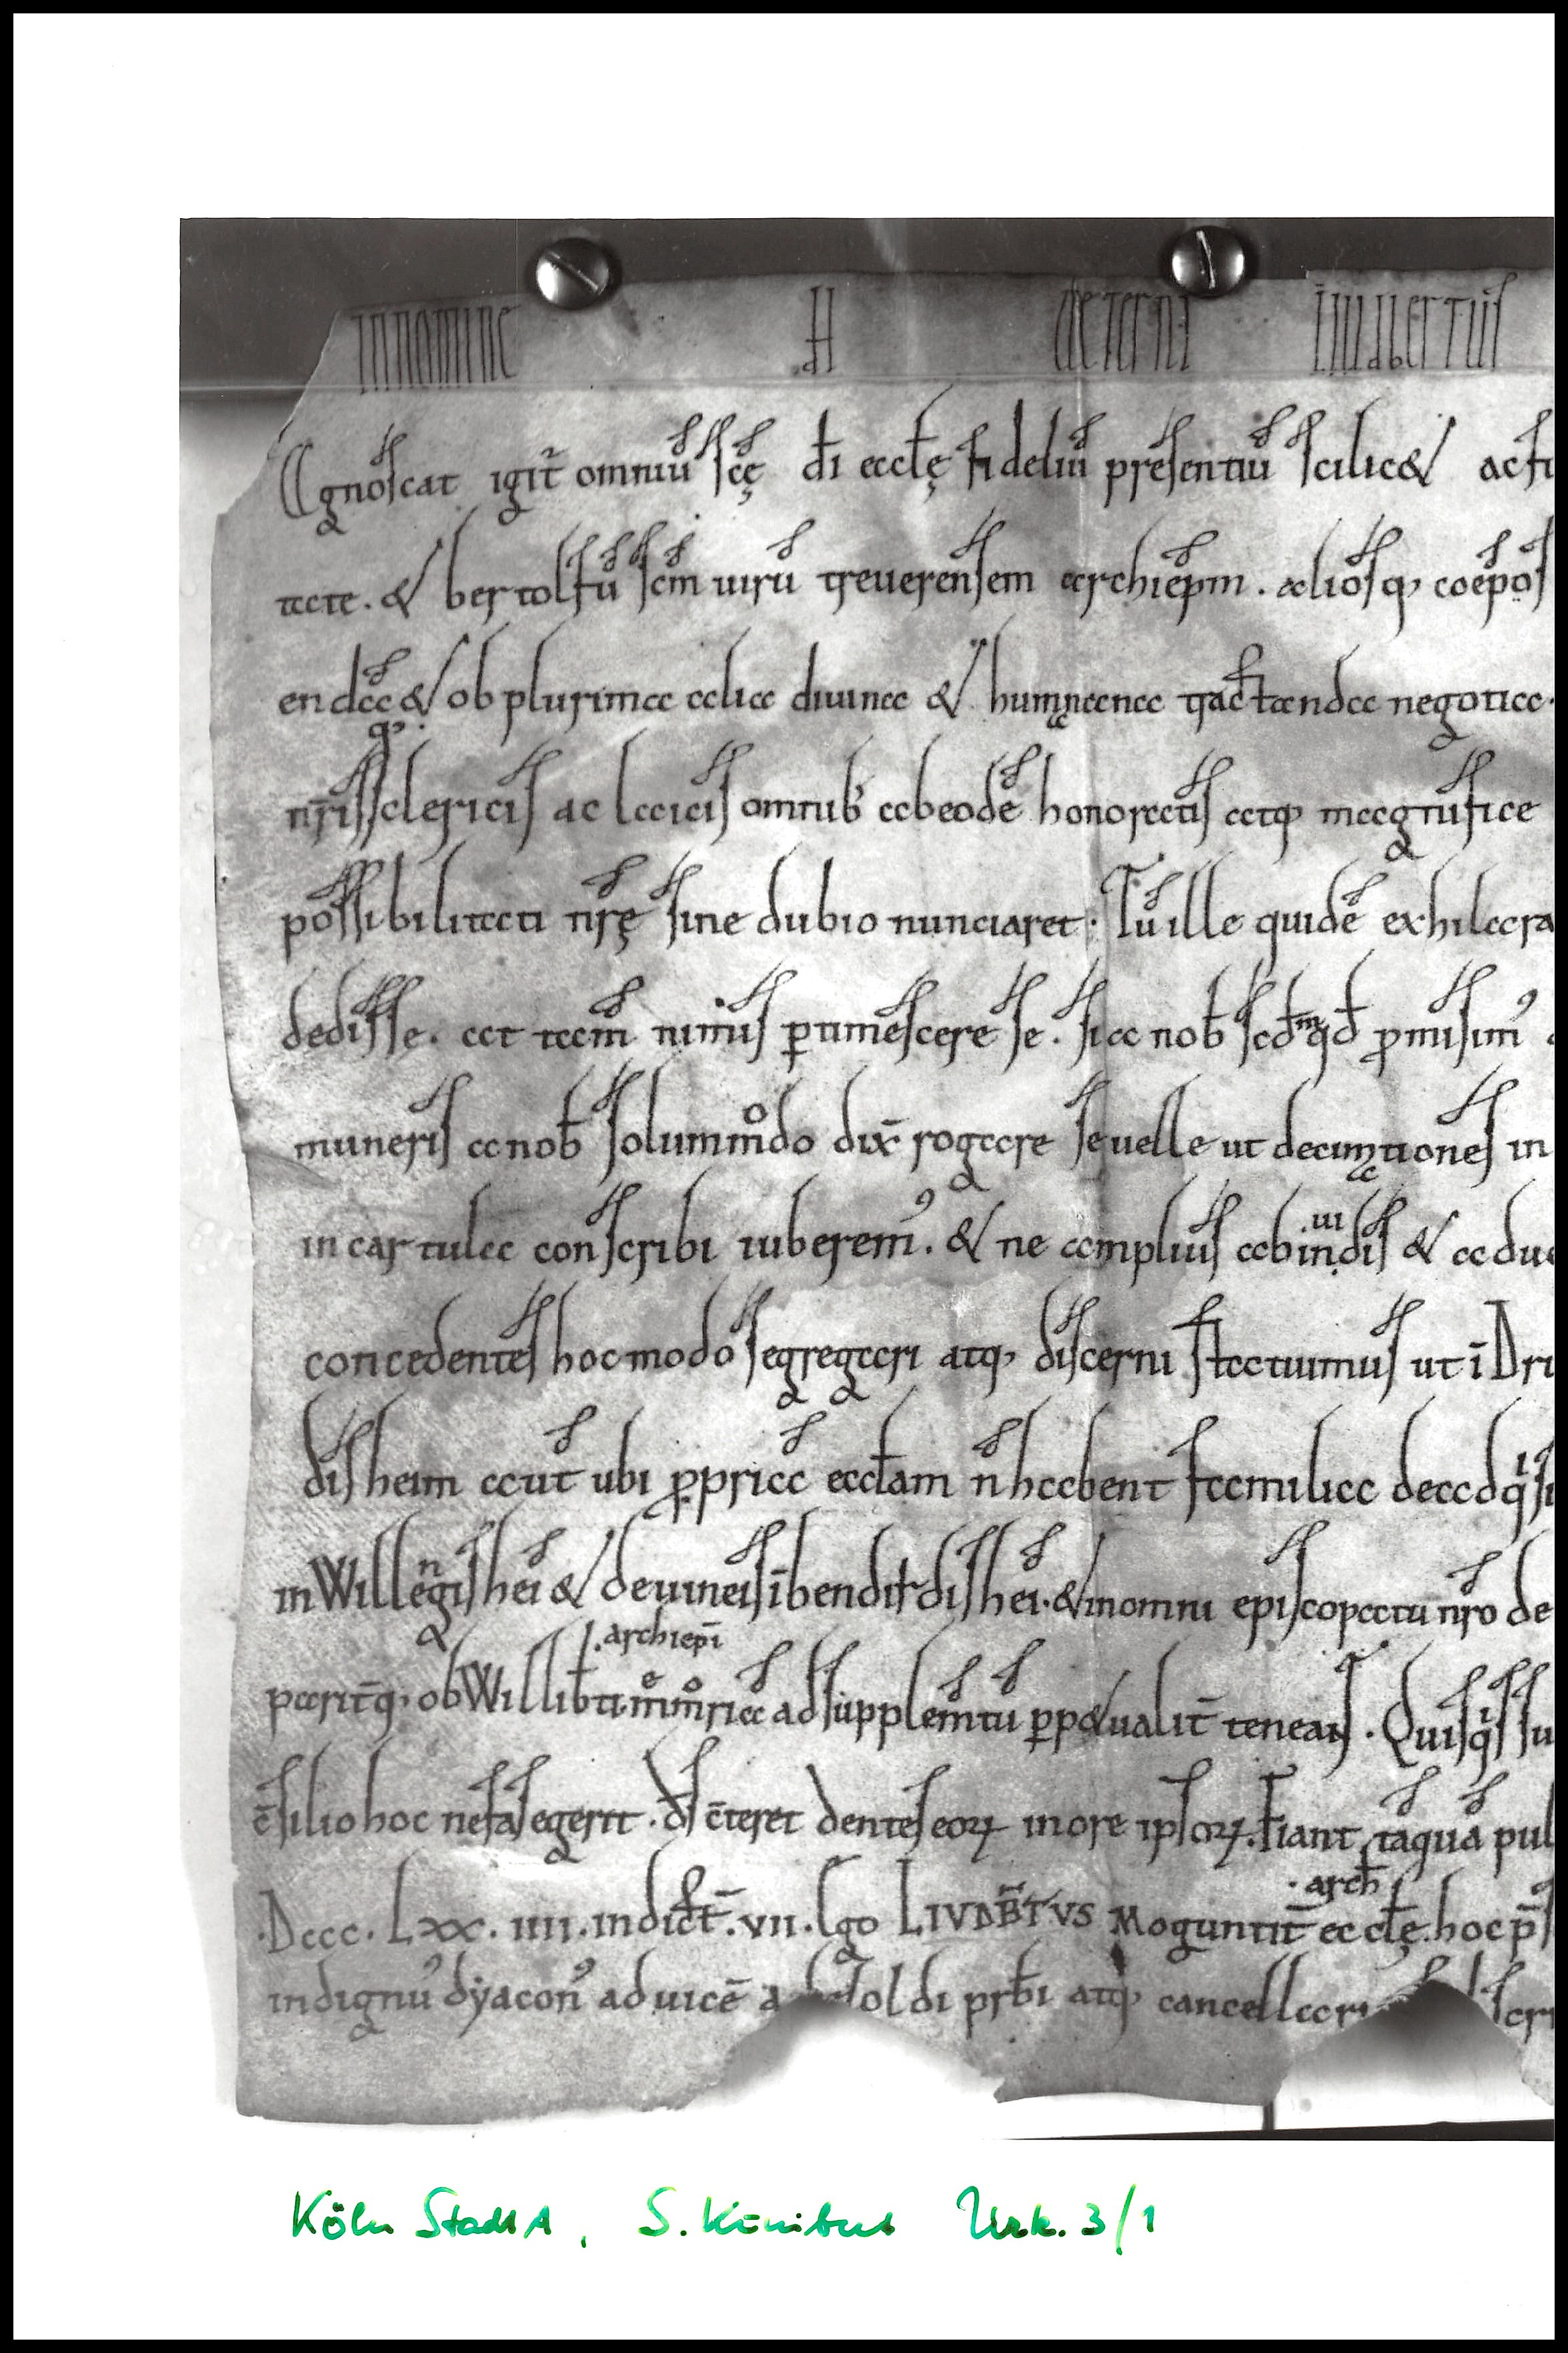 In nomine di aeterni liudbertus
Agnoscat igit̄ omniū scę̄ dī eccłę fideliū presentiū scilic& ac fu
tate. & bertolfū scm̄ uirū treuerensem archiep̄m. aliosq; coep̄os
enda & ob plurima alia diuina & humana tractanda negotia.
nr̄is q; clericis ac laicis omnib; ab eodē honoratis atq; magnifice
possibilitati nr̄ę sine dubio nunciaret. Tū ille quidē exhilara
dedisse. at tam̄ nimis ꝑtimescere se. si a nob̄ scd̄m qd̄ ꝓmisim᾿
muneris a nob̄ solummͦdo dix̄ rogare se uelle ut decimationes in
in cartula conscribi iuberem᾿. & ne amplius ab inuidis & adue
concedentes hoc modo segregari atq; discerni statuimus ut ī Dru
disheim aut ubi ꝓpriā eccłam n̄ habent familia de adqͥsi
in Willengisheī & de uineis ī benditdisheī. & in omni episcopatu nr̄o de
.archiep̄i
parit̄q; ob Willib̄ti mͤmͦriā ad supplem̄tū ꝑp&ualit̄ teneat̄. Quisqͥs su
c̄silio hoc nefas egerit. ds̄ c̄teret dentes eoꝝ in ore ipsoꝝ. Fiant tāquā pul
.arch̄
.Dccc. Lxx. iiii. indict̄. vii. Ego LIVDB̄TVS Moguntit̄ eccłę. hoc p̄s
indignu᾿ dyacon᾿ ad uicē soldi prb̄i atq; cancellari scri
Köln StadtA, S. Kunibert Urk. 3/1